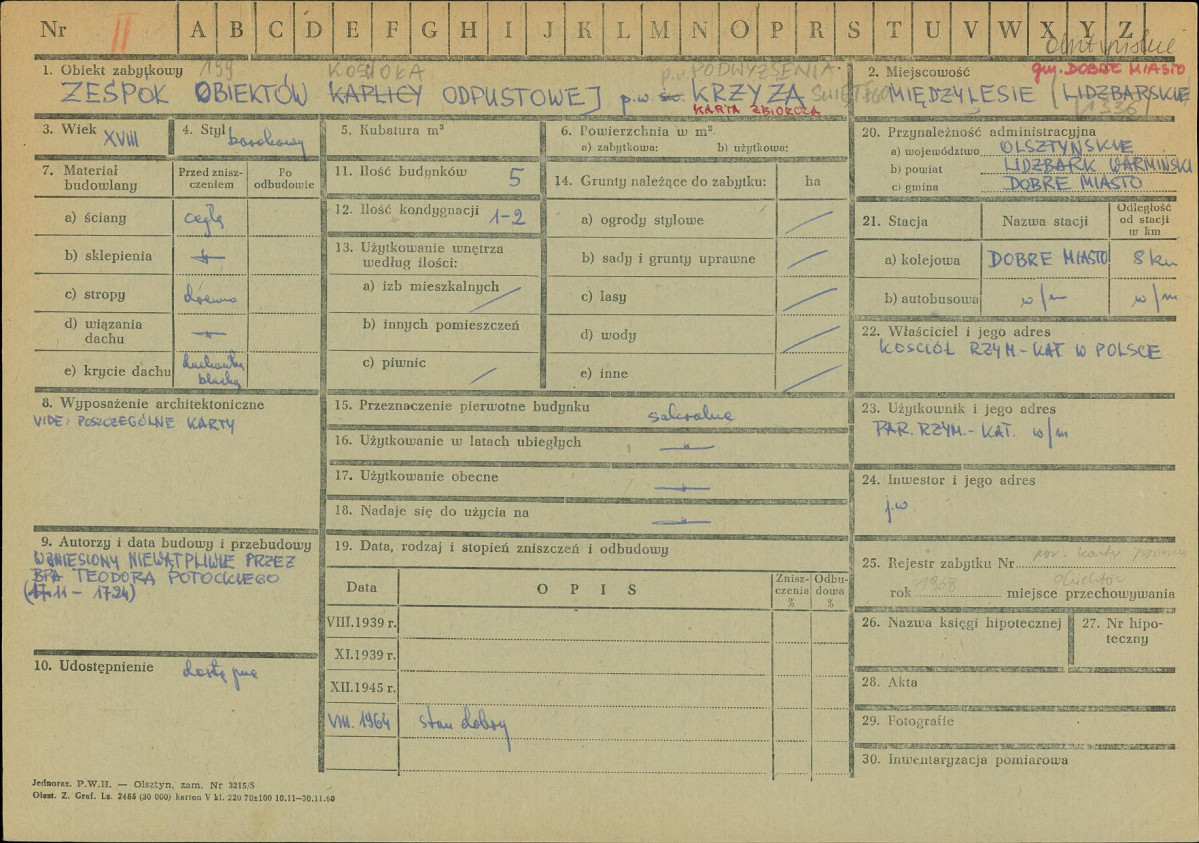 Nr II A B C D E F G H I J K L M N O P R S T U V W X Y Z
1. Obiekt zabytkowy 199 KOŚCIOŁA p.w. PODWYŻSZENIA
ZESPÓŁ OBIEKTÓW KAPLICY ODPUSTOWEJ p.w. św. KRZYŻA ŚWIĘTEGO
KARTA ZBIORCZA
2. Miejscowość gm. DOBRE MIASTO
MIĘDZYLESIE (LIDZBARSKIE)
1336
3. Wiek XVIII
4. Styl barokowy
5. Kubatura m³
6. Powierzchnia w m²
a) zabytkowa: b) użytkowa:
7. Materiał budowlany
Przed zniszczeniem
Po odbudowie
a) ściany cegła
b) sklepienia
c) stropy drewno
d) wiązania dachu
e) krycie dachu dachówka blacha
8. Wyposażenie architektoniczne
VIDE: POSZCZEGÓLNE KARTY
9. Autorzy i data budowy i przebudowy
WZNIESIONY NIEWĄTPLIWIE PRZEZ
BPA TEODORA POTOCKIEGO
(1711 - 1724)
10. Udostępnienie dostępne
11. Ilość budynków 5
12. Ilość kondygnacji 1-2
13. Użytkowanie wnętrza
według ilości:
a) izb mieszkalnych
b) innych pomieszczeń
c) piwnic
14. Grunty należące do zabytku: ha
a) ogrody stylowe
b) sady i grunty uprawne
c) lasy
d) wody
e) inne
15. Przeznaczenie pierwotne budynku sakralne
16. Użytkowanie w latach ubiegłych
17. Użytkowanie obecne
18. Nadaje się do użycia na
19. Data, rodzaj i stopień zniszczeń i odbudowy
Data OPIS Zniszczenia % Odbudowa %
VIII.1939 r.
XI.1939 r.
XII.1945 r.
VIII. 1964 stan dobry
20. Przynależność administracyjna
a) województwo OLSZTYŃSKIE
b) powiat LIDZBARK WARMIŃSKI
c) gmina DOBRE MIASTO
21. Stacja Nazwa stacji Odległość od stacji w km
a) kolejowa DOBRE MIASTO 8 km
b) autobusowa w/m w/m
22. Właściciel i jego adres
KOŚCIÓŁ RZYM.-KAT. W POLSCE
23. Użytkownik i jego adres
PAR. RZYM.-KAT. w/m
24. Inwestor i jego adres
j.w
25. Rejestr zabytku Nr
rok 1968 miejsce przechowywania
26. Nazwa księgi hipotecznej
27. Nr hipoteczny
28. Akta
29. Fotografie
30. Inwentaryzacja pomiarowa
Jednoraz. P.W.H. — Olsztyn, zam. Nr 3215/S
Olszt. Z. Graf. Ls. 2485 (30 000) karton V kl. 220 70x100 10.11—30.11.60